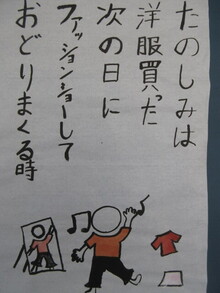 たのしみは
洋服買った
次の日に
ファッションショーして
おどりまくる時